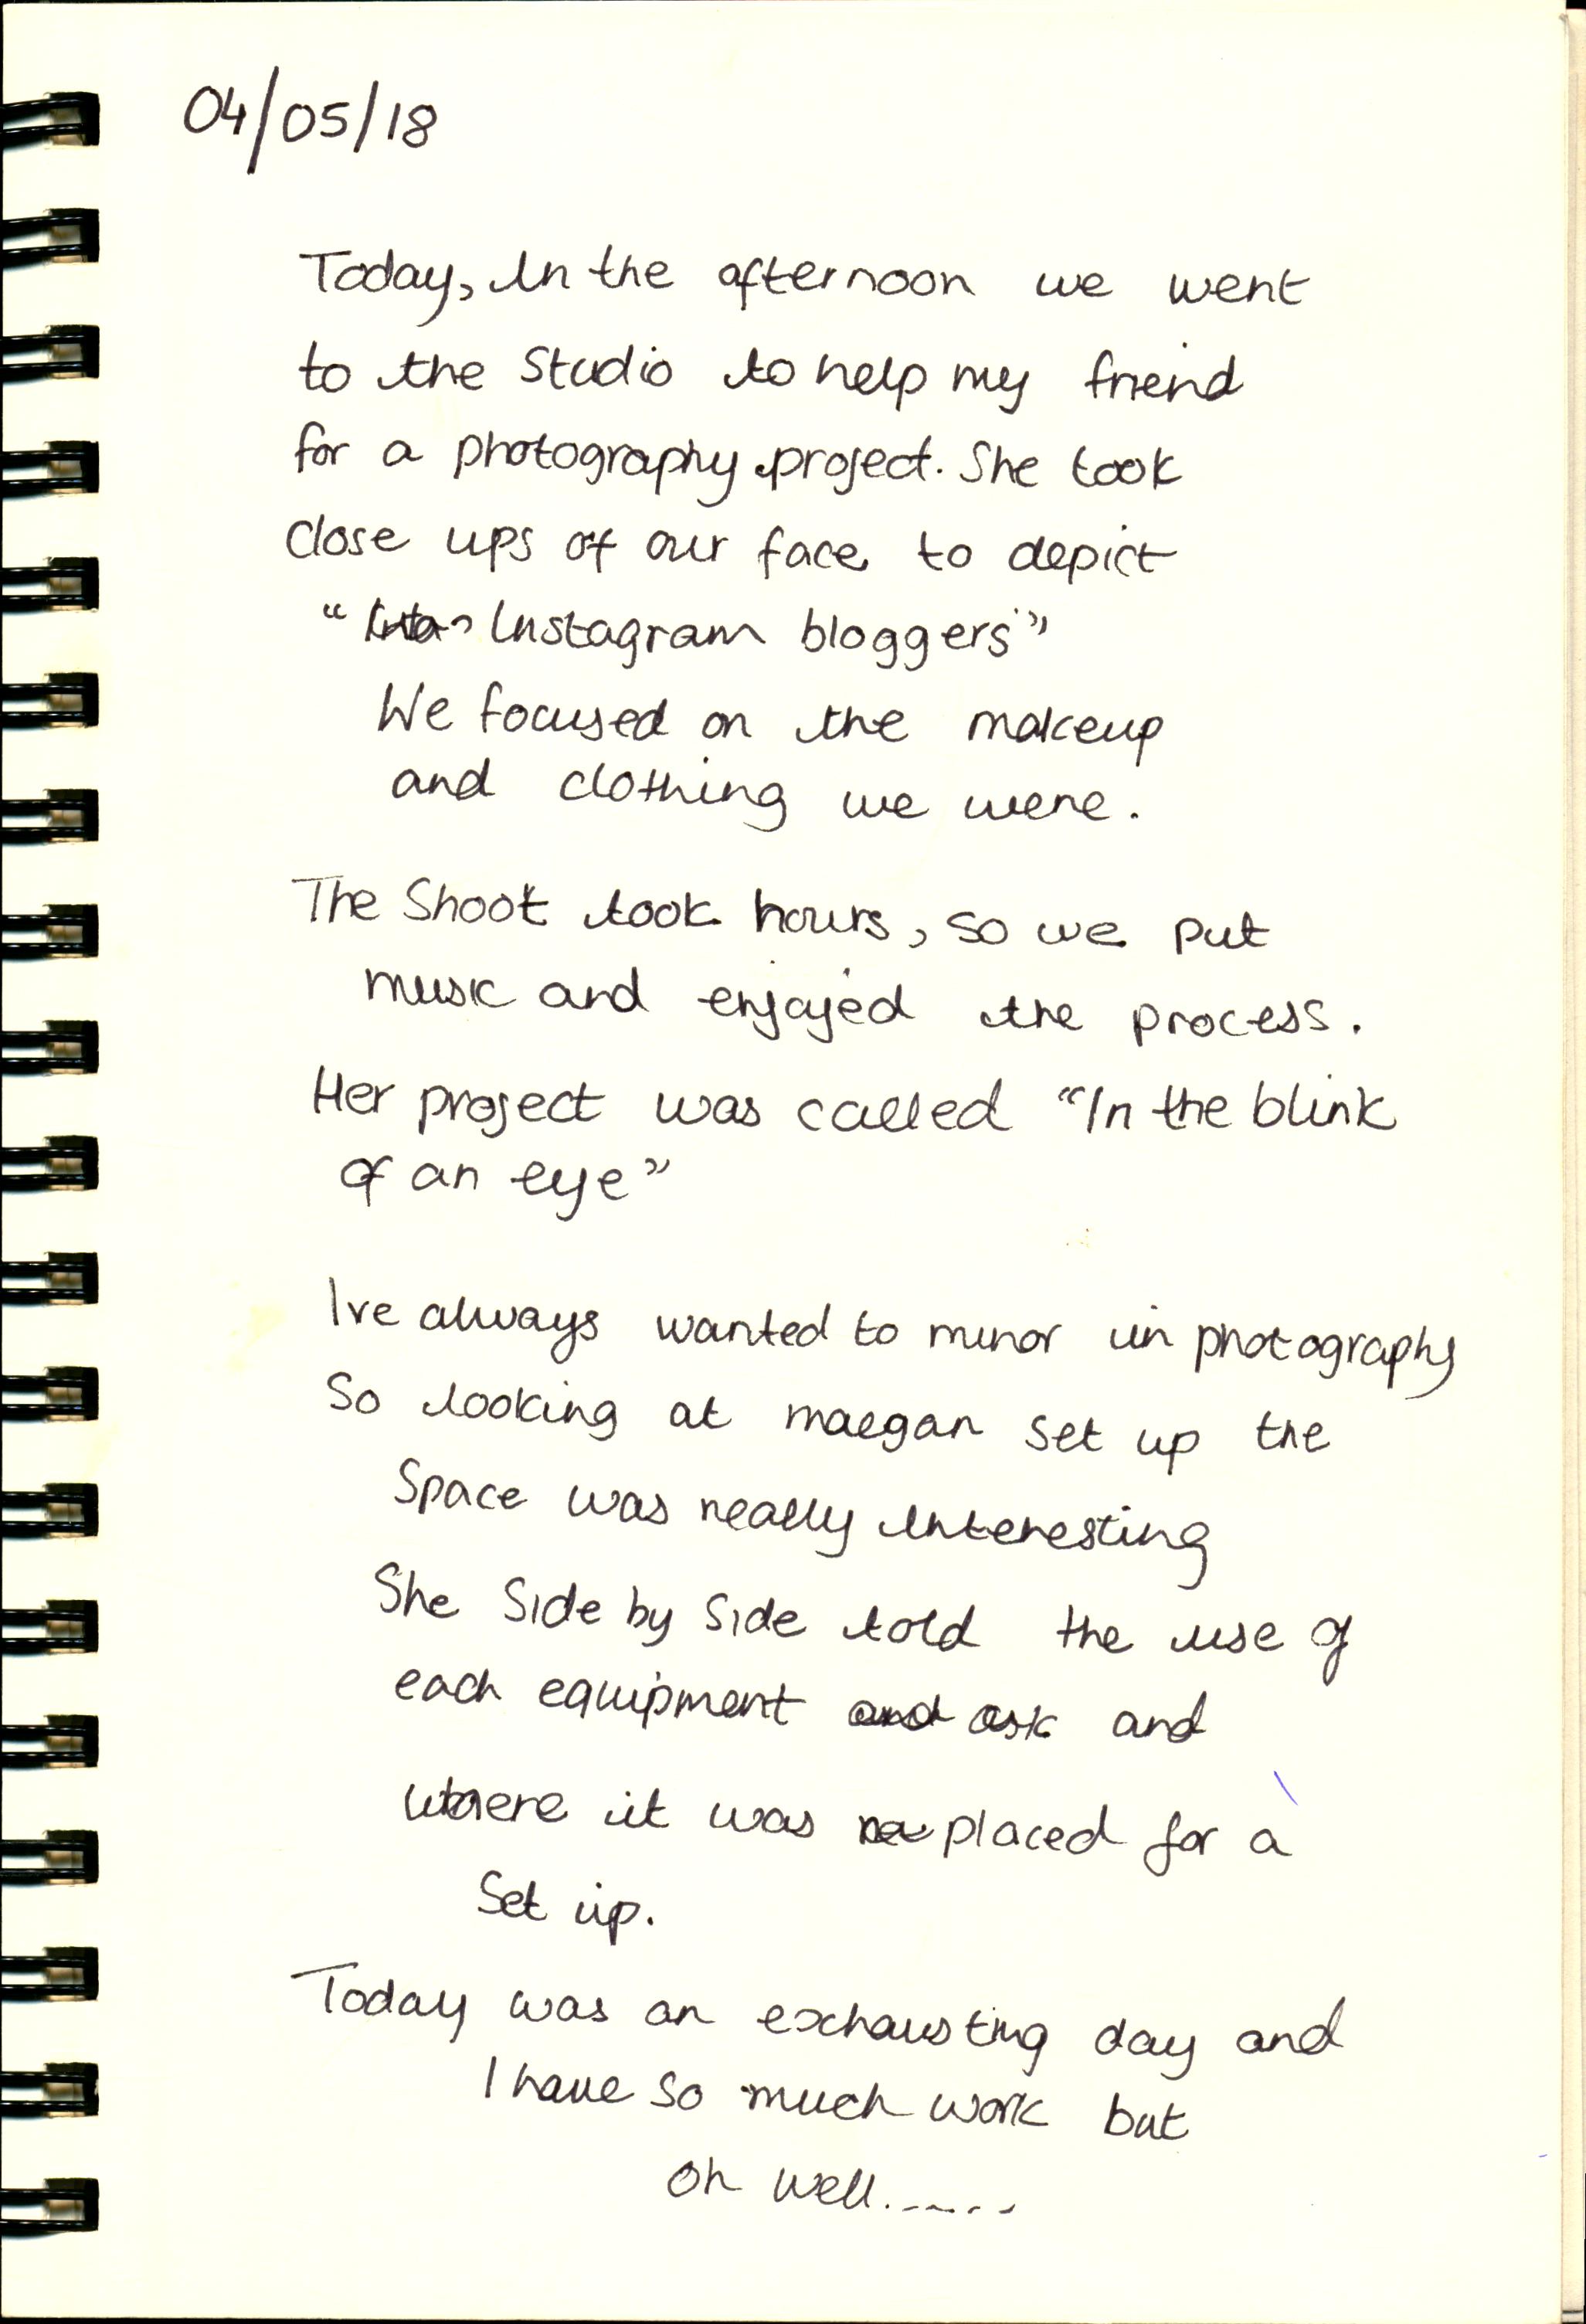 04/05/18
Today, In the afternoon we went
to the Studio to help my friend
for a photography project. She took
Close ups of our face to depict
" Instagram bloggers"
We focused on the makeup
and clothing we were.
The Shoot took hours, so we put
music and enjoyed the process.
Her project was called "In the blink
of an eye"
Ive always wanted to minor in photography
So looking at maegan set up the
Space was really interesting
She Side by Side told the use of
each equipment and ask and
where it was placed for a
Set up.
Today was an exhausting day and
I have so much work but
oh well......